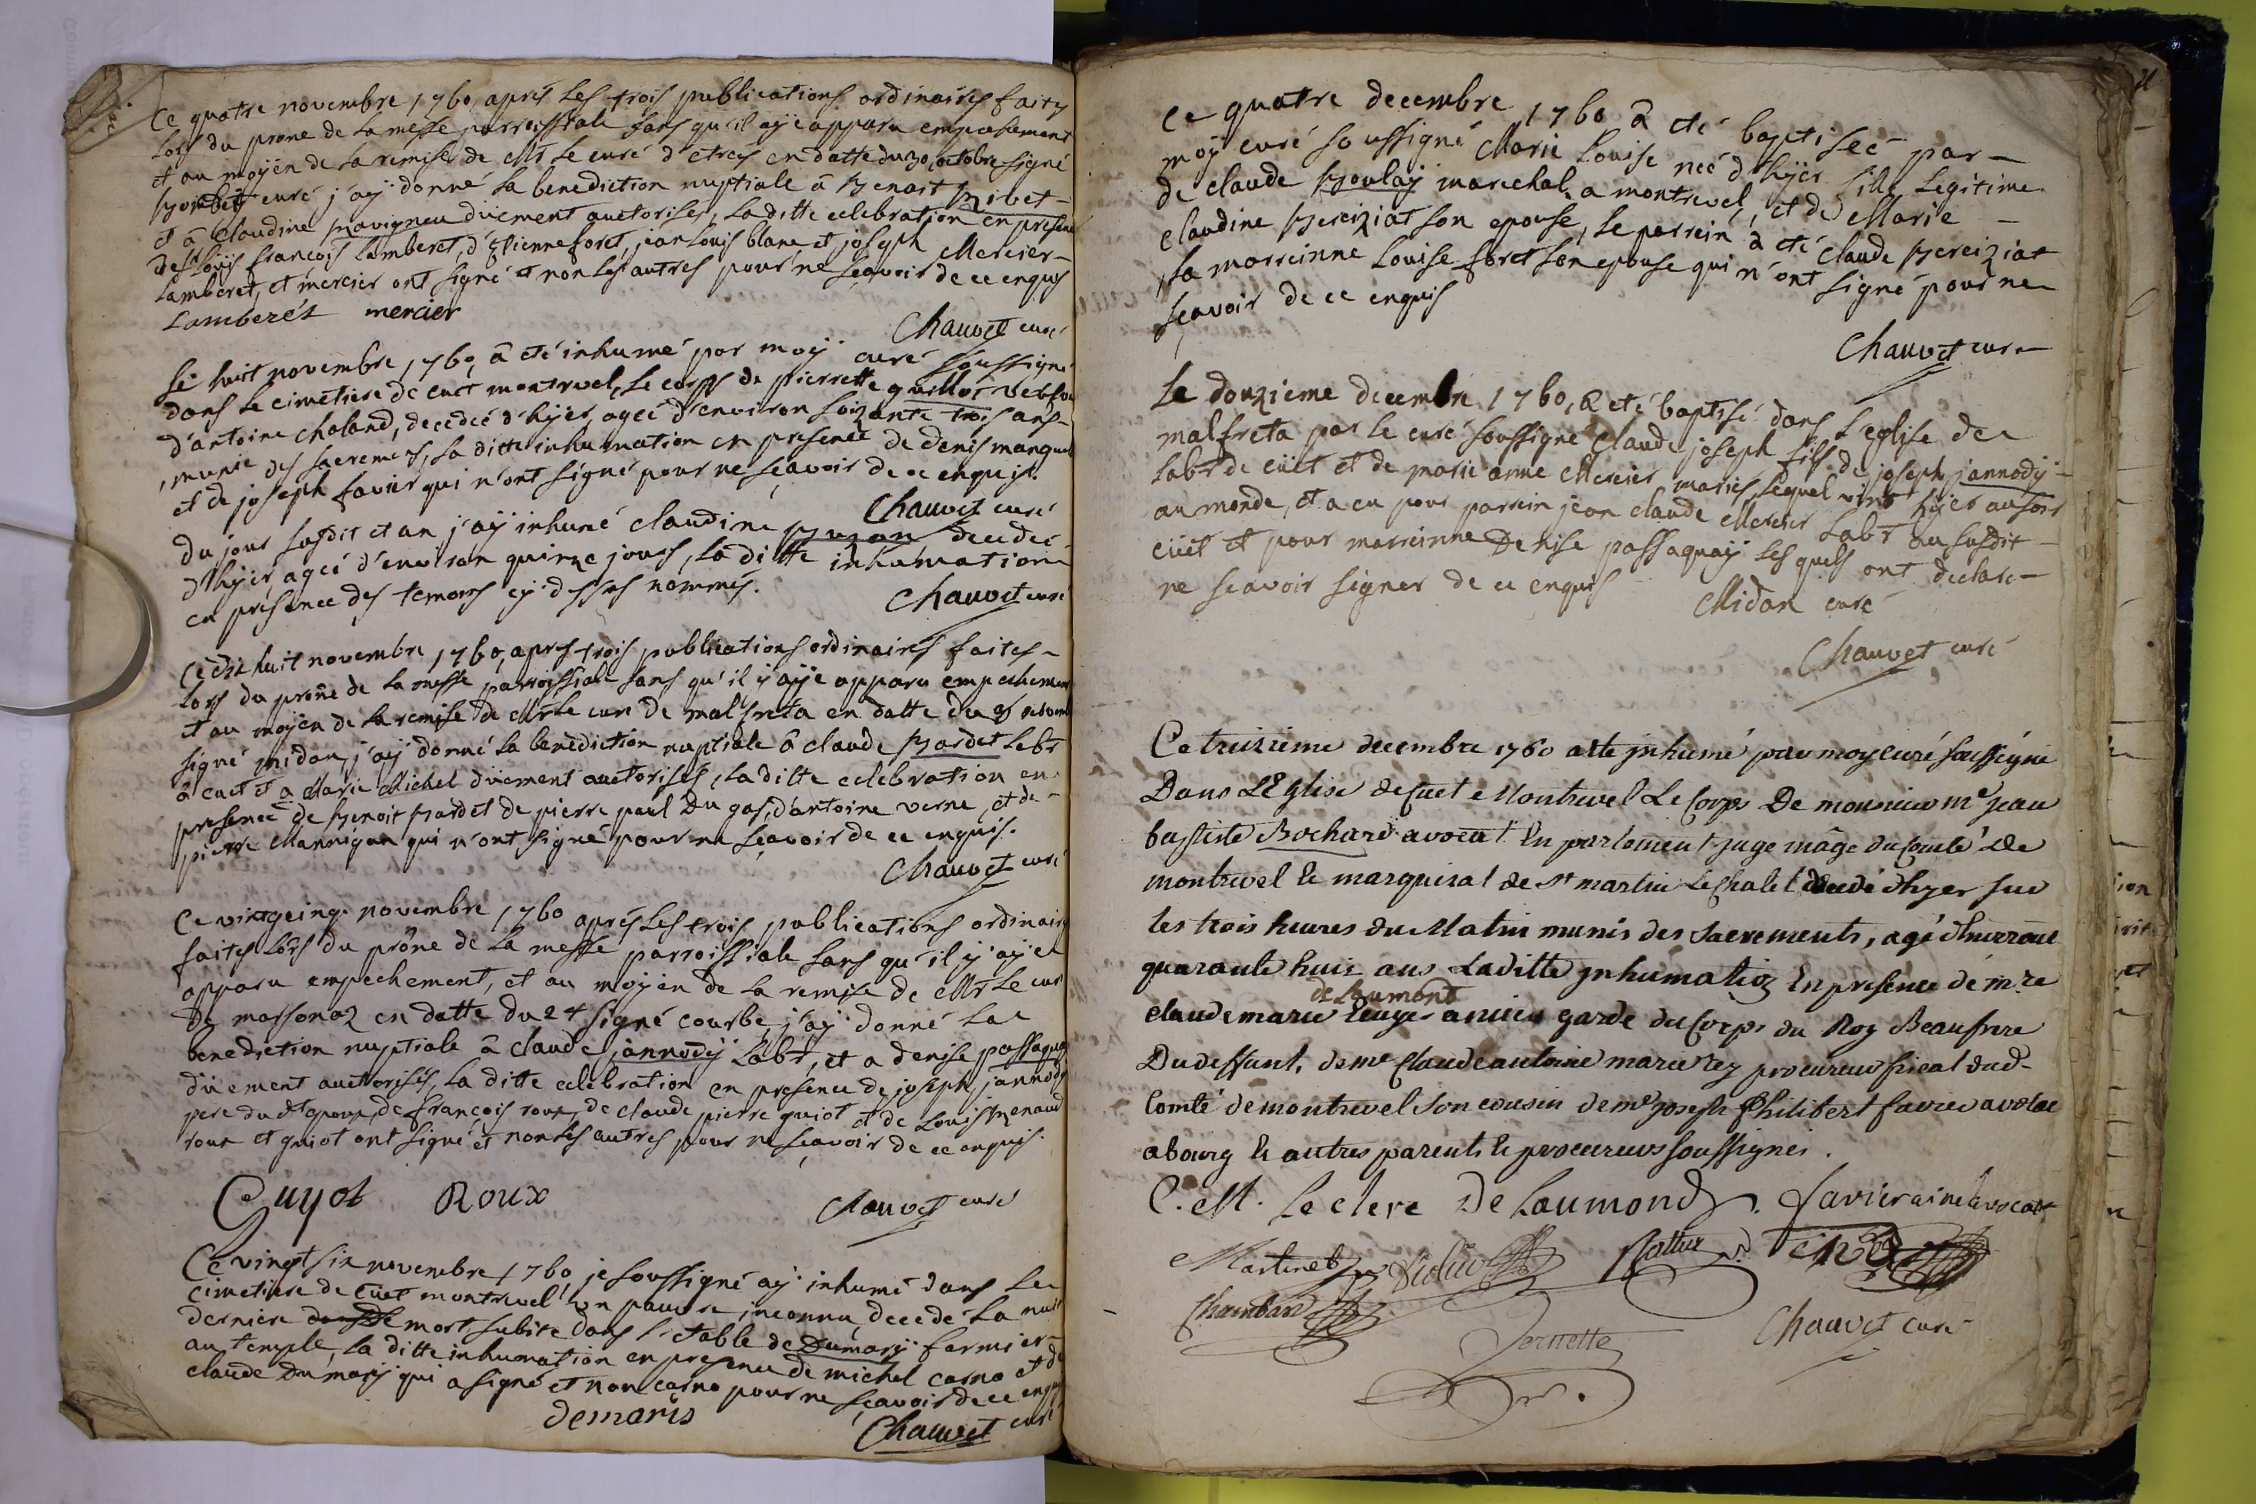 Ce quatre novembre 1760, aprés les trois publications ordinaires faites
lors du prone de la messe parroissiale sans qu'il aÿe apparu empechement
et au moÿen de la remise de Mr le curé d'etrés en datte du 30 octobre signé
curé j'aÿ donné la benediction nuptiale â benoit
et â Claudine duëment auctorisés, la ditte celebration en presence
de Louis françois Lamberet, d'Etienne foret, jean Louis blanc et joseph Mercier
Lamberet, et mercier ont signé et non les autres pour ne sçavoir de ce enquis
Lamberét mercier
Chauvet curé
Le huit novembre 1760, â eté inhumé par moÿ curé soussigné
dans le cimetiere de cuet montrevel, le corps de pierrette guillot veufve
d'antoine chaland, decedeé d'hÿer, ageé d'environ soixante trois ans
munie des sacremens, la ditte inhumation en presence de denis
et de joseph favier qui n'ont signé pour ne sçavoir de ce enquis.
Chauvet curé
Du jour susdit et an, j'aÿ inhumé claudine decedeé
d'hÿer, ageé d'environ quinze jours, la ditte inhumation
en presence des temoins cÿ dessus nommés.
Chauvet curé
Ce dix huit novembre 1760, apres trois publications ordinaires faites
lors du prône de la messe parroissiale sans qu'il ÿ aÿe apparu empechement
et au moÿen de la remise de Mr le curé de malfreta en datte du
signé midan, j'aÿ donné la benediction nuptiale â claude bardet labr
â cuet et a Marie Michel duëment auctorisés, la ditte celebration en
presence de benoit bardet de pierre paul Du gas, d'antoine verne, et de
pierre Mannigan qui n'ont signé pour ne sçavoir de ce enquis.
Chauvet curé
Ce vingt cinq novembre 1760 aprés les trois publications ordinaires
faites lors du prône de la messe parroissiale sans qu'il ÿ aÿe
apparu empechement, et au moÿen de la remise de Mr le curé
de massonaz en datte du 24 signé courbe, j'aÿ donné la
benediction nuptiale â claude jannodÿ labr, et a denise passaquaÿ
duëment auctorisés, la ditte celebration en presence de joseph jannodÿ
pere du dt epoux, de françois roux, de claude pierre guiot et de Louis
roux et guiot ont signé et non les autres pour ne sçavoir de ce enquis.
Guyot Roux
Chauvet curé
Ce vingt six novembre 1760, je soussigné aÿ inhumé dans le
cimetiere de Cuet montrevel un pauvre inconnu, decedé la nuit
derniere de mort subite dans l'etable de Dumarÿ fermier
au temple, la ditte inhumation en presence de michel carno et de
claude Dumarÿ qui a signé et non carno pour ne sçavoir de ce enquis
demaris
Chauvet curé
Ce quatre decembre 1760 â eté baptiseé par
moÿ curé soussigné Marie Louise neé d'hÿer fille legitime
de claude boulaÿ marechal a montrevel, et de Marie
claudine bereiziat son epouse, le parrein â eté claude bereiziat
la marreinne Louise foret son epouse qui n'ont signé pour ne
sçavoir de ce enquis
Chauvet curé
Le douzieme decembre 1760, â eté baptisé dans l'eglise de
malfreta par le curé soussigné Claude joseph fils de joseph jannodÿ
labr de cüet et de marie anne Mercier mariés, lequel vint hÿer au soir
au monde, et a eu pour parrein jean claude Mercier labr au susdit
cüet et pour marreinne Denise passaquaÿ lesquels ont declaré
ne scavoir signer de ce enquis Midan curé
Chauvet curé
Ce treizieme decembre 1760 a ete jnhumé par moy curé soussigné
Dans L'Eglise de Cuet e Montrevel Le Corps De monsieur me jean
baptiste Bochard avocat En parlement juge mâge du Comté de
montrevel & marquisat de st martin Le Chatel decedé d'hyer sur
les trois heures du Matin munis des sacrements, agé d'Environt
quarante huit ans Laditte jnhumation En presence de mre
de Loumont
claude marie ancien garde du Corps du Roy Beaufrere
Du deffunt, de me Claude antoine marie Rey procureur fiscal dud
Comté de montrevel son cousin de me joseph Philibert favier avocat
abourg & autres parents & procureurs soussignés.
C. M. Le clerc De Loumond. favier ainé avocat
Martinet
Chambard
Chauvet curé